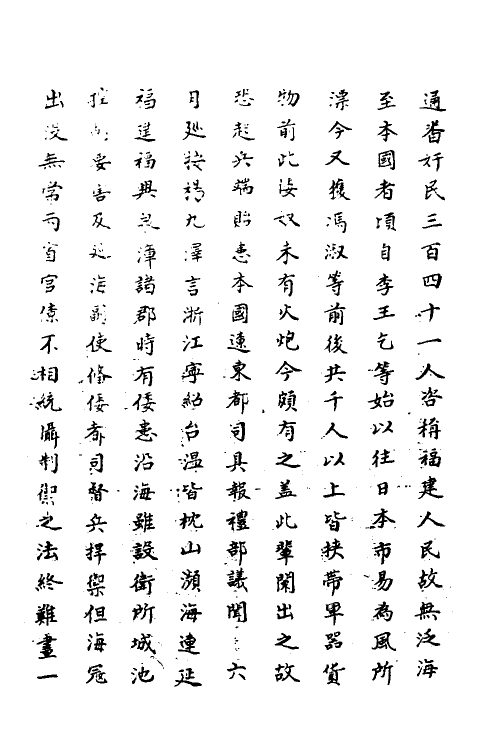 通番奸民三百四十一人咨稱福建人民故無泛海
至本國者頃自李王乞等始以往日本市易為風所
漂今又獲馮淑等前後共千人以上皆挾帶軍器貨
物前此倭奴未有火炮今頗有之蓋此輩闌出之故
恐起兵端貽患本國遼東都司具報禮部議聞 六
月廵按楊九澤言浙江寧紹台溫皆枕山瀕海連延
福建福興泉漳諸郡時有倭患沿海雖設衛所城池
控制要害及廵海副使俻倭都司督兵捍禦但海冦
出沒無常兩省官僚不相統攝制禦之法終難畫一